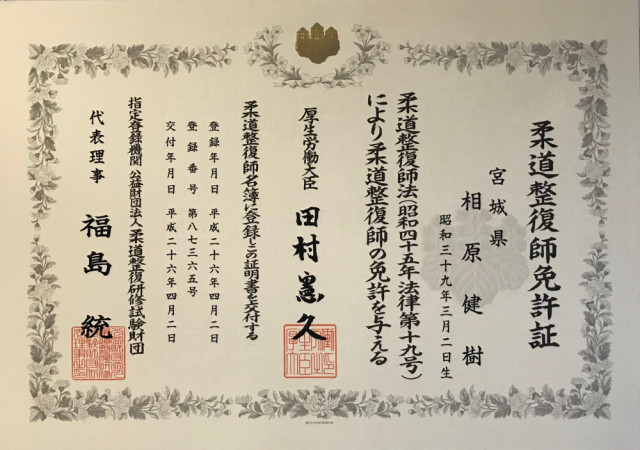 柔道整復師免許証
宮城県
相原健樹
昭和三十九年三月二日生
柔道整復師法(昭和四十五年法律第十九号)
により柔道整復師の免許を与える
厚生労働大臣 田村憲久
柔道整復師名簿に登録しこの証明書を交付する
登録年月日 平成二十六年四月二日
登録番号 第八七三六五号
交付年月日 平成二十六年四月二日
指定登録機関 公益財団法人柔道整復研修試験財団
代表理事 福島統